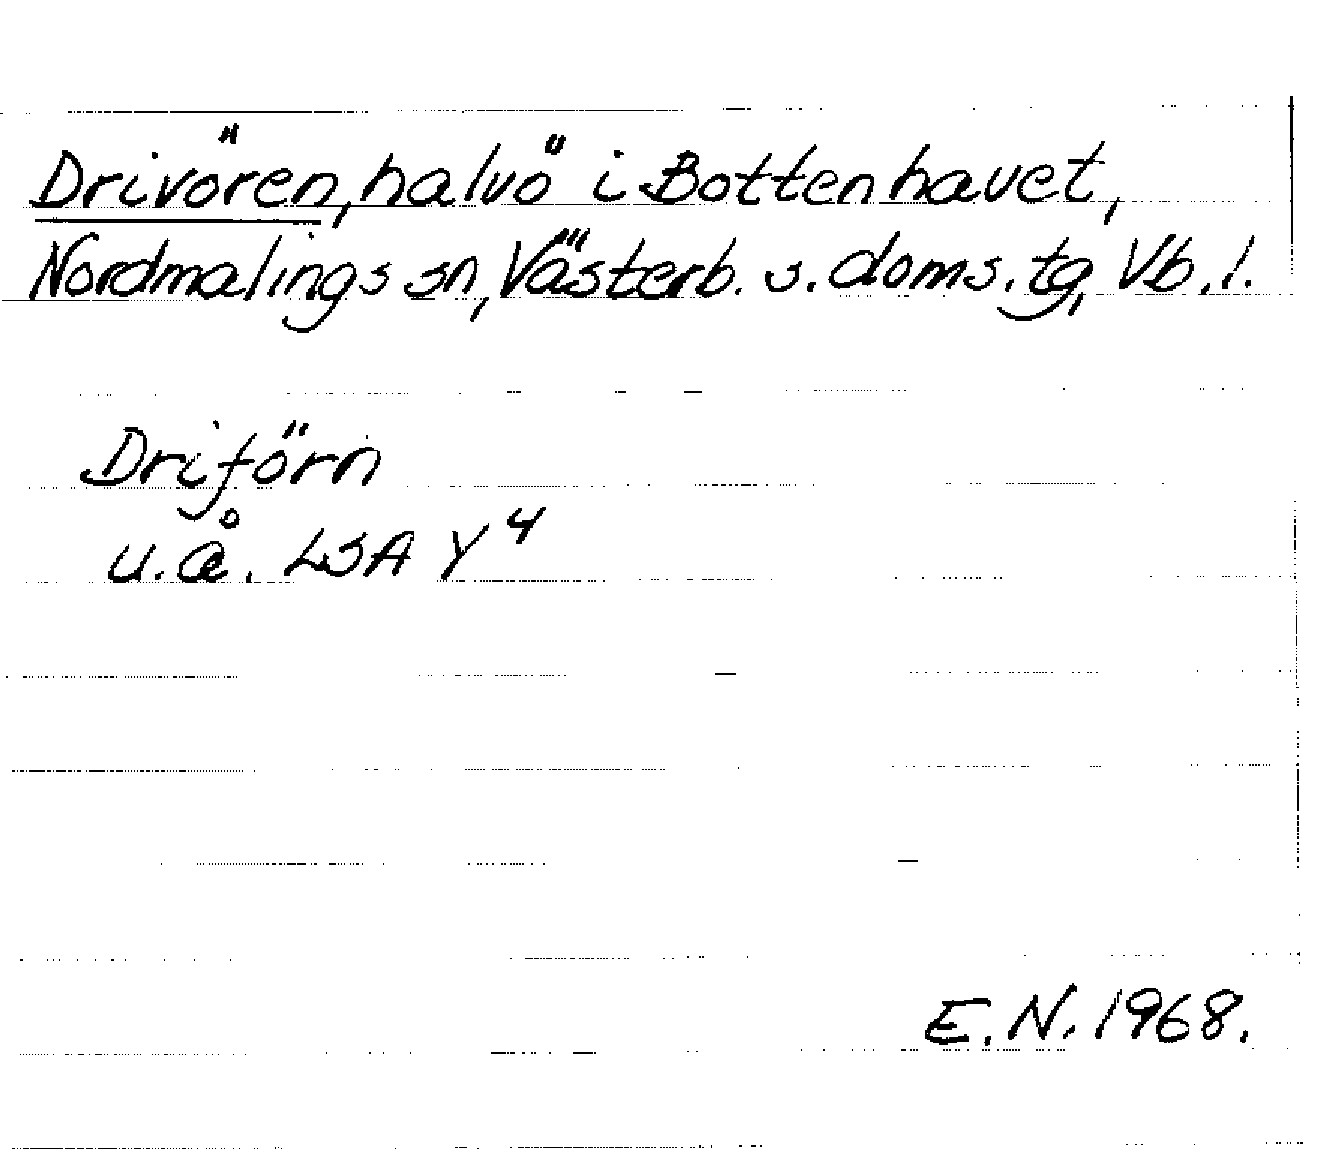 Drivören, halvö i Bottenhavet,
Nordmalings sn, Västerb. s. doms. tg, Vb. l.
Driförn
u.å. LSA Y4
E.N. 1968.